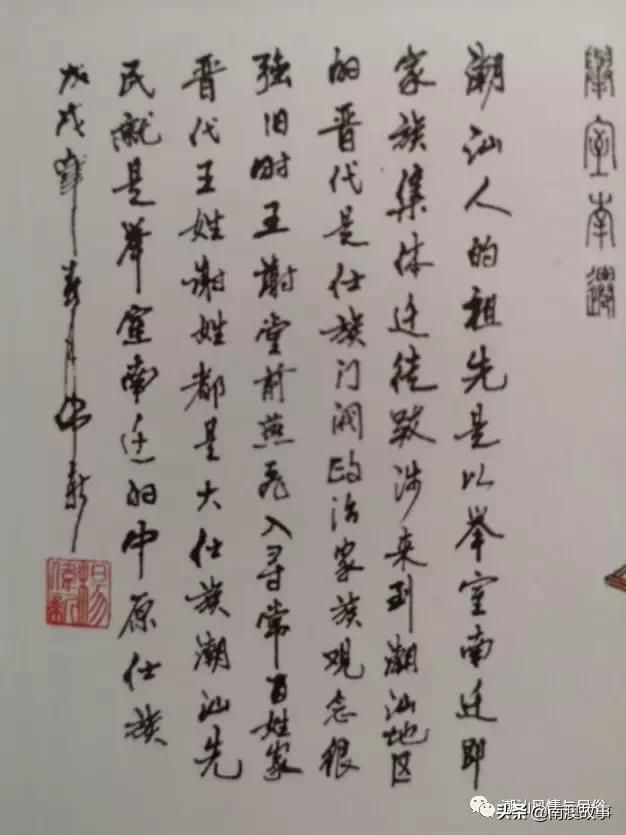 舉室南遷
潮汕人的祖先是以举室南迁即
家族集体迁徙跋涉来到潮汕地区
的晋代是仕族门阀政治家族观念很
强旧时王谢堂前燕飞入寻常百姓家
晋代王姓谢姓都是大仕族潮汕先
民就是举室南迁的中原仕族
戊戌年 月伟新
潮汕风情与民俗
头条 @ 故事